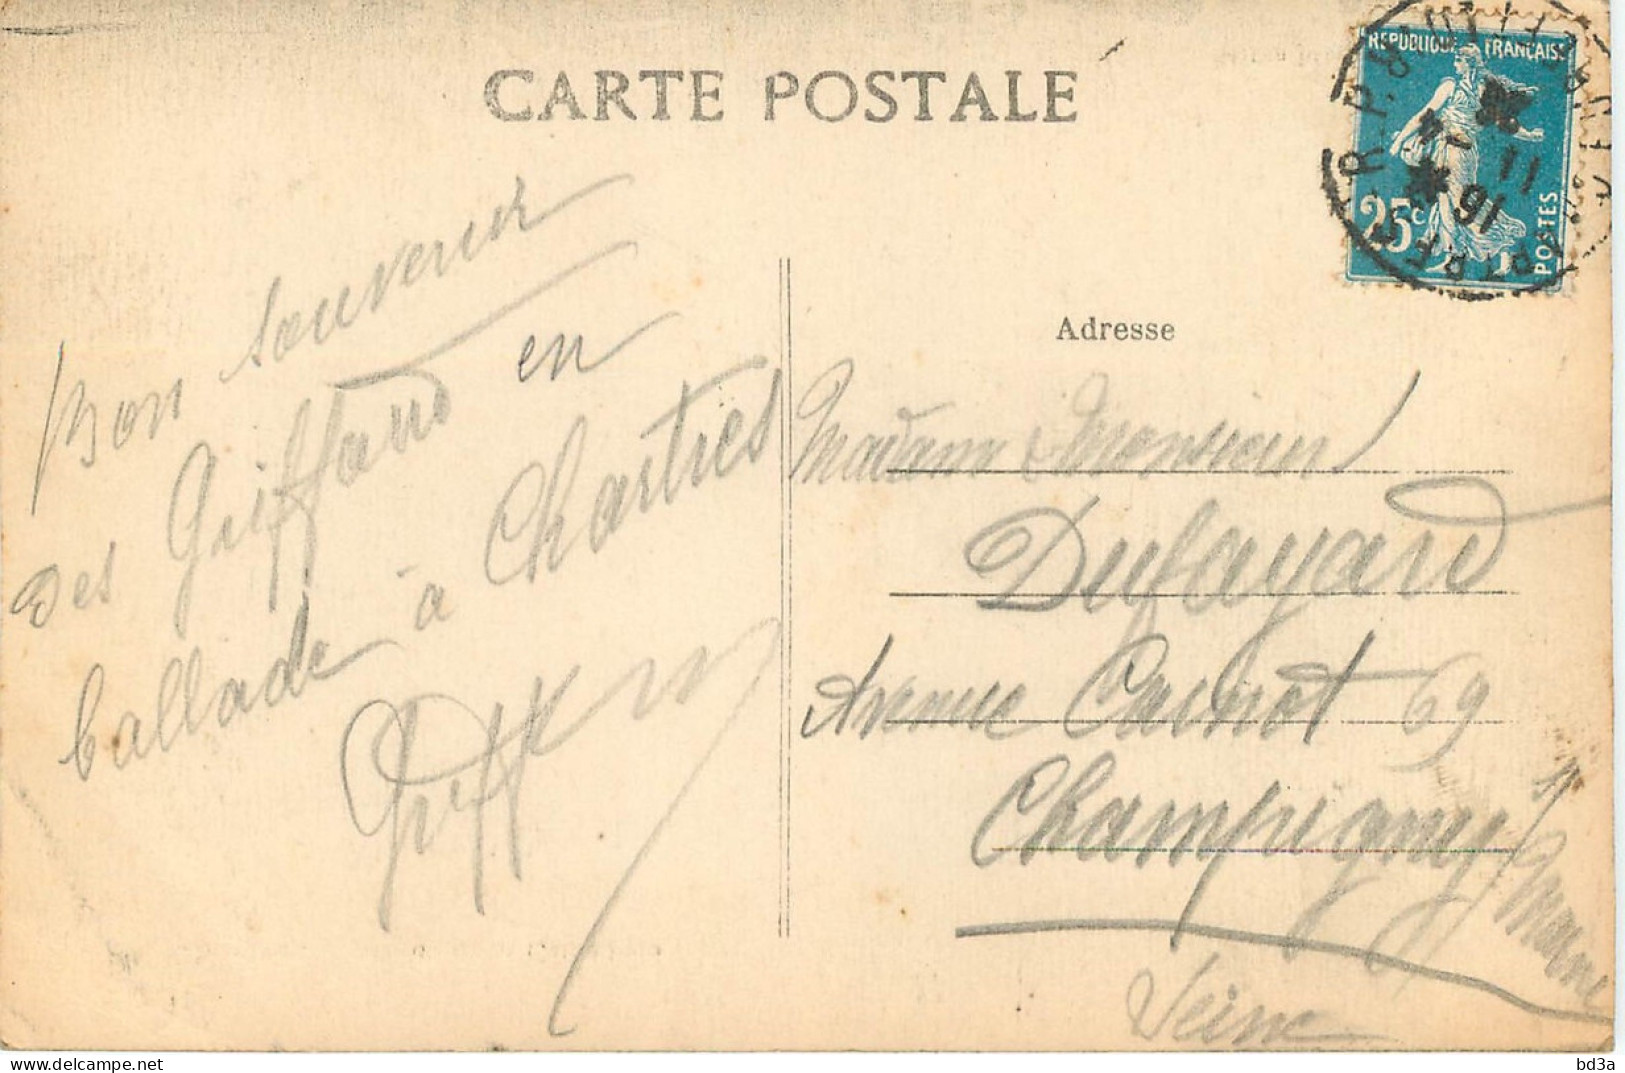 CARTE POSTALE
REPUBLIQUE FRANCAISE
25c
POSTES
Bon souvenir
des Griffaud en
ballade à Chartres
Adresse
Madame & Monsieur
Dufayard
Avenue Carnot 69
Champigny s/ Marne
Seine
delcampe.net
bd3a